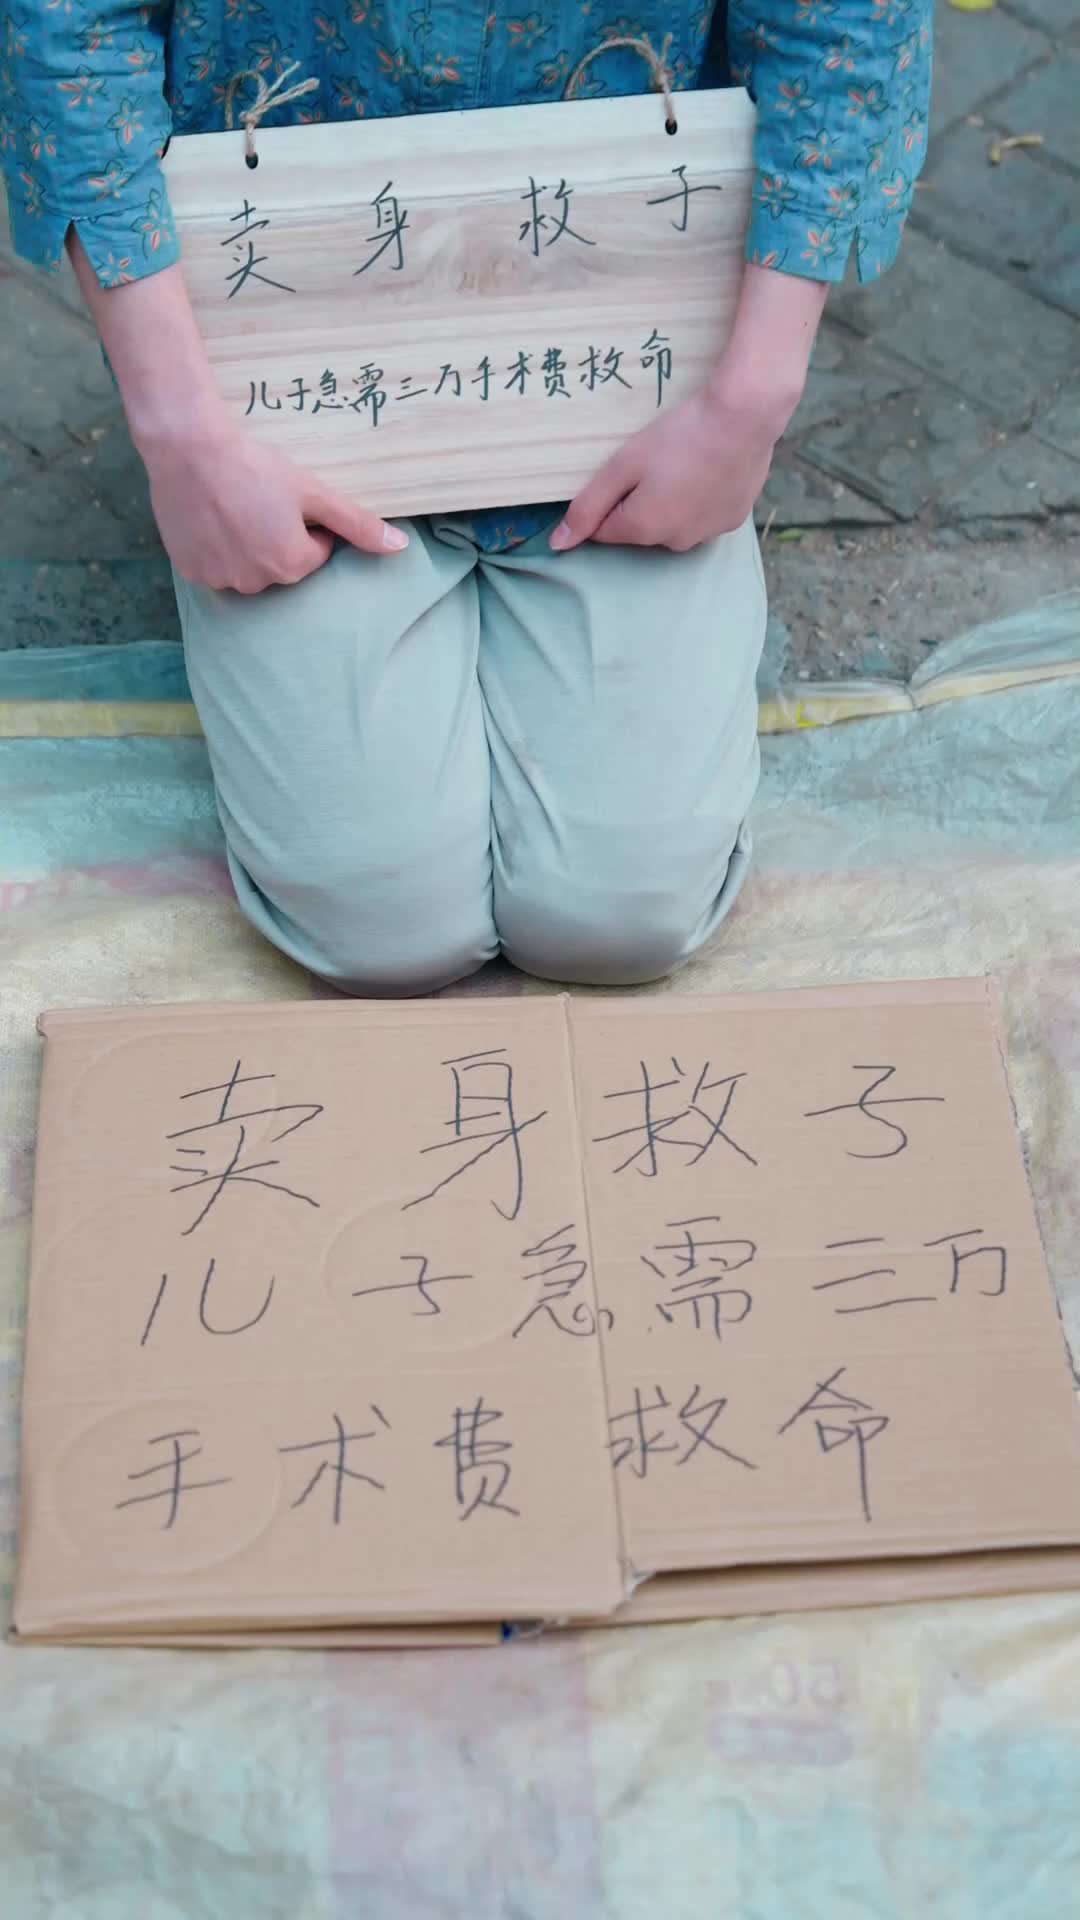 卖身救子
儿子急需三万手术费救命
卖身救子
儿子急需三万
手术费救命